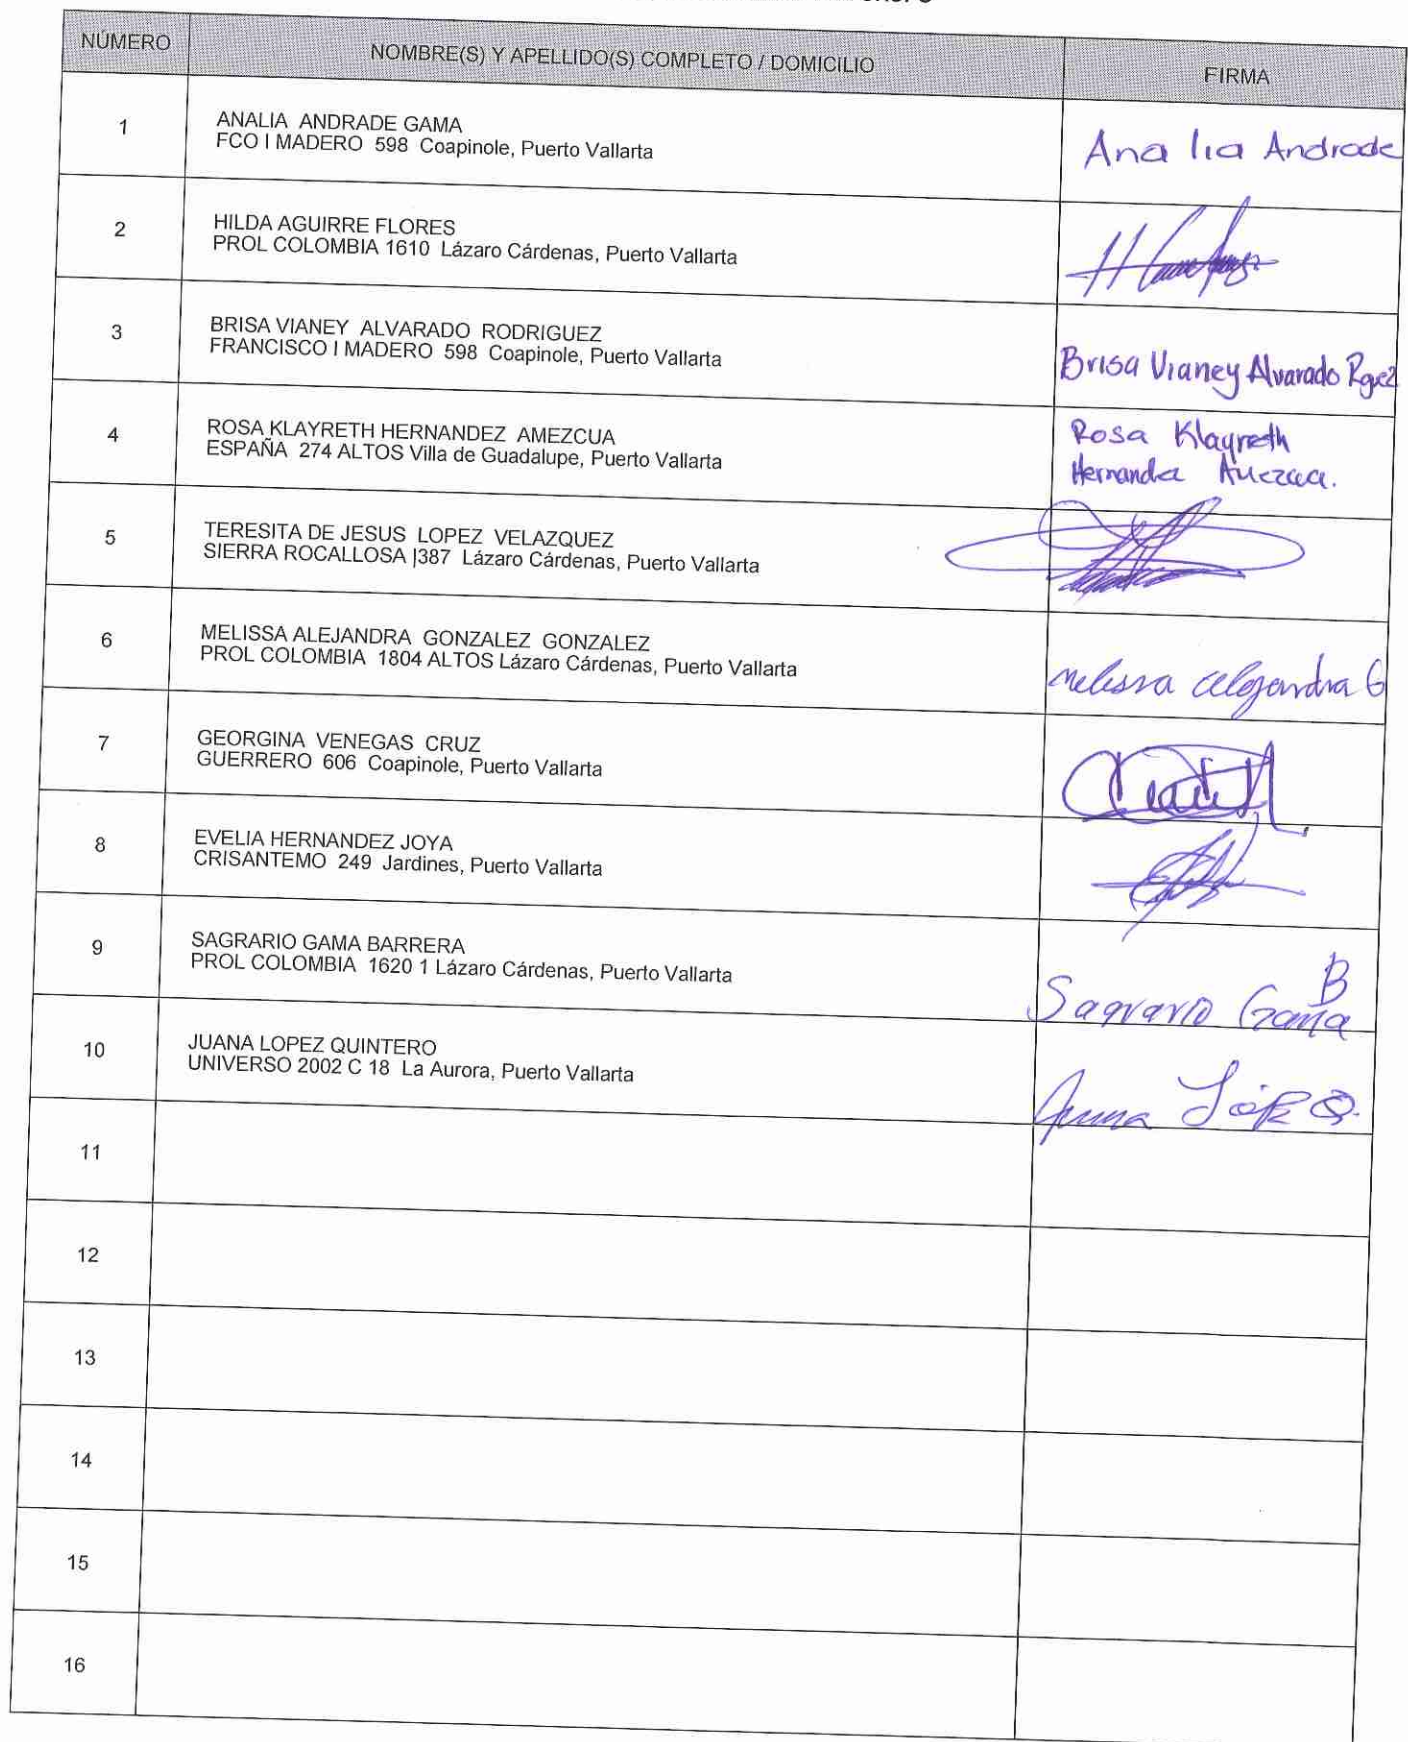 NÚMERO NOMBRE(S) Y APELLIDO(S) COMPLETO / DOMICILIO FIRMA
1 ANALIA ANDRADE GAMA
FCO I MADERO 598 Coapinole, Puerto Vallarta
Ana lia Andrade
2 HILDA AGUIRRE FLORES
PROL COLOMBIA 1610 Lázaro Cárdenas, Puerto Vallarta
3 BRISA VIANEY ALVARADO RODRIGUEZ
FRANCISCO I MADERO 598 Coapinole, Puerto Vallarta
Brisa Vianey Alvarado Rguez
4 ROSA KLAYRETH HERNANDEZ AMEZCUA
ESPAÑA 274 ALTOS Villa de Guadalupe, Puerto Vallarta
Rosa Klayreth
Hernandez
5 TERESITA DE JESUS LOPEZ VELAZQUEZ
SIERRA ROCALLOSA |387 Lázaro Cárdenas, Puerto Vallarta
6 MELISSA ALEJANDRA GONZALEZ GONZALEZ
PROL COLOMBIA 1804 ALTOS Lázaro Cárdenas, Puerto Vallarta
Melissa Alejandra G
7 GEORGINA VENEGAS CRUZ
GUERRERO 606 Coapinole, Puerto Vallarta
8 EVELIA HERNANDEZ JOYA
CRISANTEMO 249 Jardines, Puerto Vallarta
9 SAGRARIO GAMA BARRERA
PROL COLOMBIA 1620 1 Lázaro Cárdenas, Puerto Vallarta
Sagrario Gama B
10 JUANA LOPEZ QUINTERO
UNIVERSO 2002 C 18 La Aurora, Puerto Vallarta
Juana López Q.
11
12
13
14
15
16